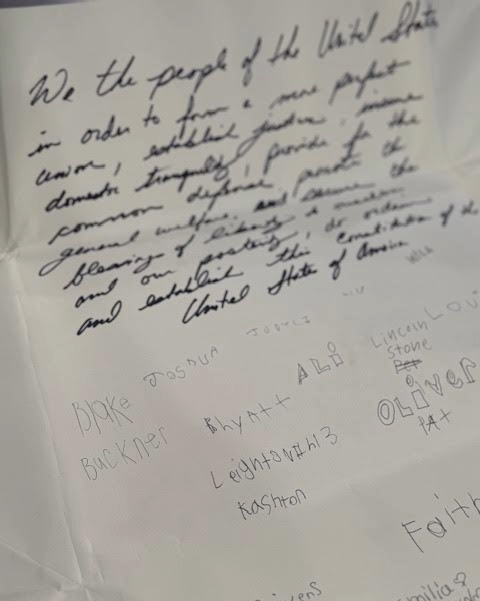 We the people of the United States
in order to form a more perfect
union, establish justice, insure
domestic tranquility, provide for the
common defense, promote the
general welfare, and secure the
blessings of liberty to
and our posterity, do ordain
and establish this Constitution of the
United States of America
Will
Joshua
Blake
Buckner
Rhyatt
ALi
Lincoln
Stone
Loui
OLiver
PAt
Leighton
Kashton
Faith
milia